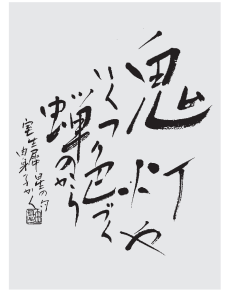 鬼灯や
いくつ色づく
蝉のから
室生犀星の句
かく